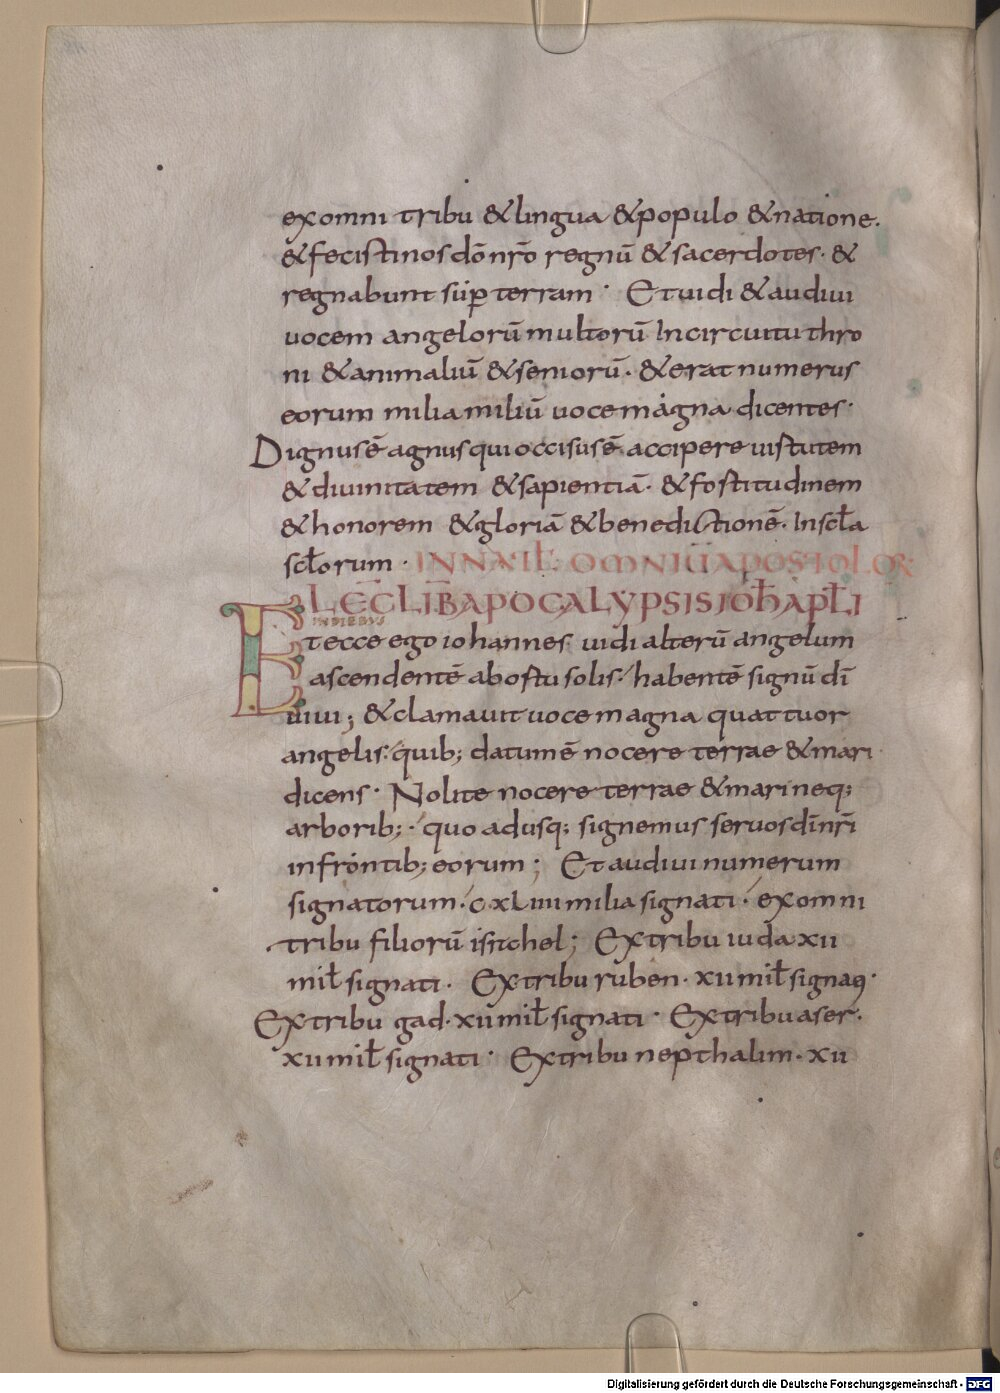 ex omni tribu & lingua & populo & natione.
& fecisti nos dō nr̄o regnū & sacerdotes· &
regnabunt sup̄ terram· Et uidi & audiui
uocem angelorū multorū In circuitu thro
ni & animaliū & seniorū· & erat numerus
eorum milia miliū uoce magna dicentes·
Dignus ē agnus qui occisus ē accipere uirtutem
& diuinitatem & sapientiā· & fortitudinem
& honorem & gloriā & benedictionē. In scl̄a
scl̄orum·
IN NAT̄L OMNIŪ APOSTOLOR
LEC̄ LIB̄ APOCALYPSIS IOH̄ APL̄I
IN DIEBUS
Et ecce ego iohannes uidi alterū angelum
ascendentē ab ortu solis· habentē signū dī
uiui; & clamauit uoce magna quattuor
angelis· quib; datum ē nocere terrae & mari
dicens· Nolite nocere terrae & mari neq;
arborib;· quo adusq; signemus seruos dī nr̄i
in frontib; eorum; Et audiui numerum
signatorum· cxliiii milia signati· ex omni
tribu filiorū isrl̄; Ex tribu iuda xii
mil̄ signati· Ex tribu ruben· xii mil̄ signati·
Ex tribu gad· xii mil̄ signati· Ex tribu aser·
xii mil̄ signati· Ex tribu nepthalim· xii
Digitalisierung gefördert durch die Deutsche Forschungsgemeinschaft - DFG